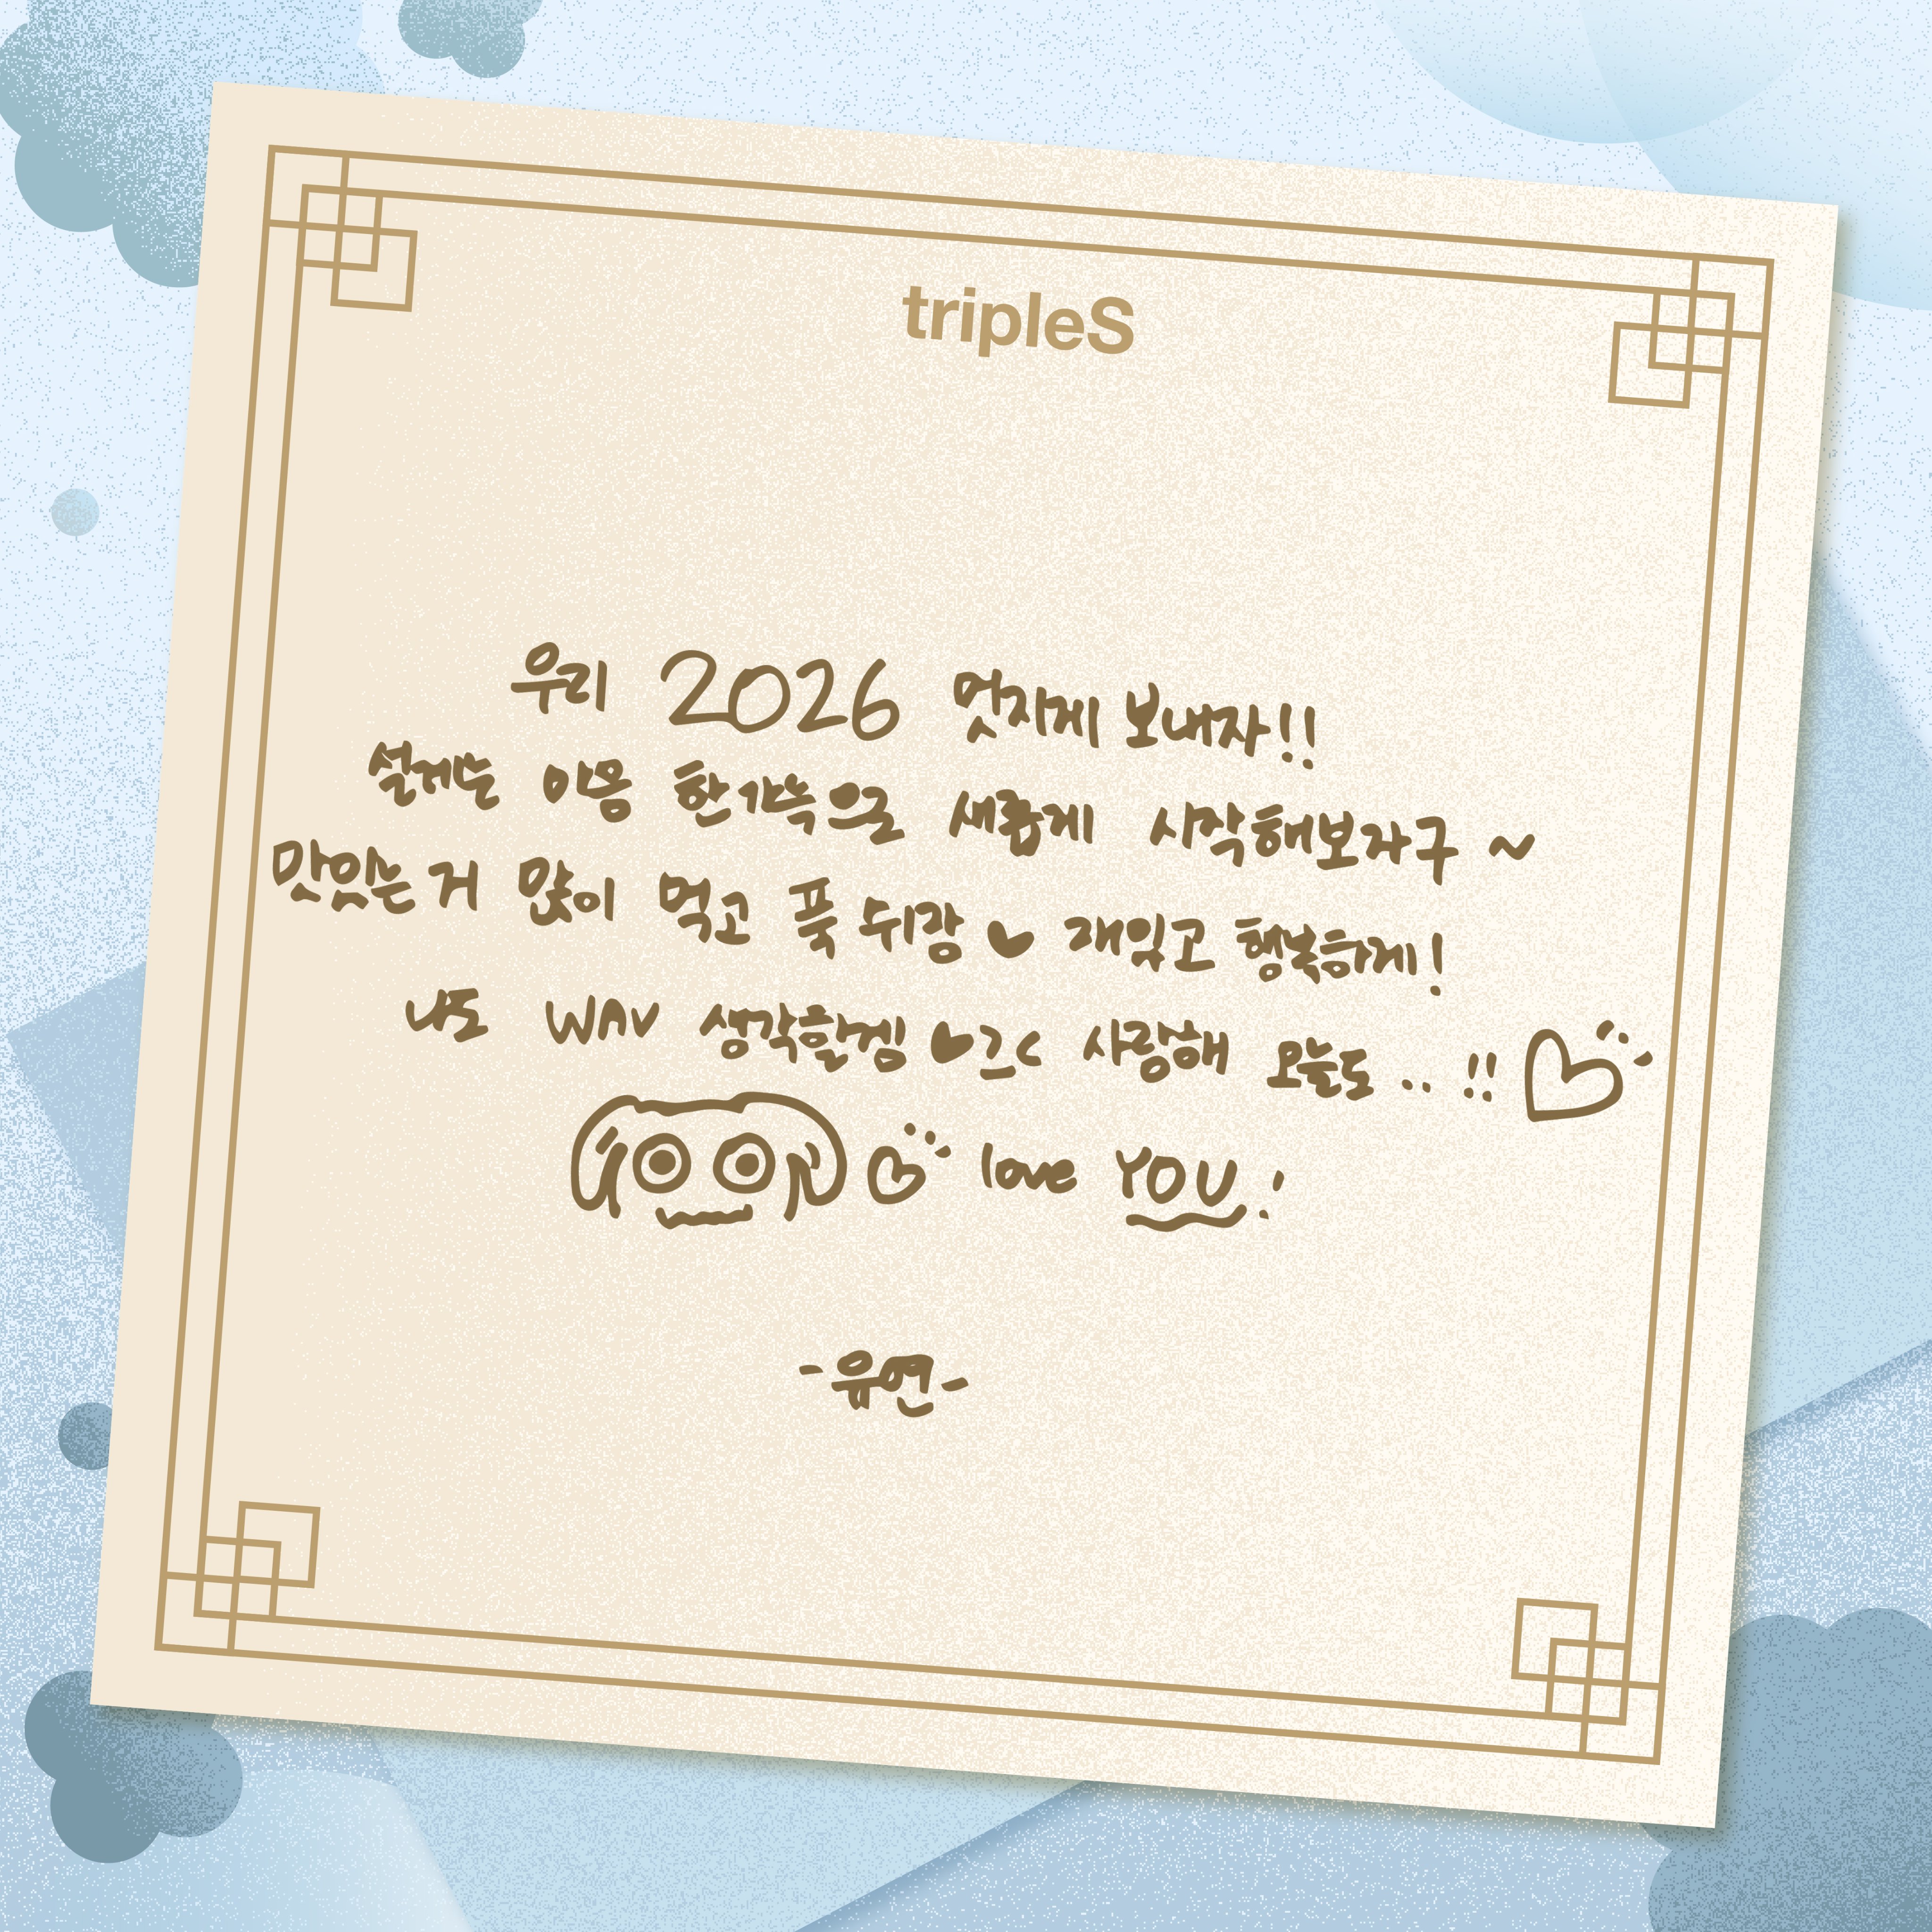 tripleS
우리 2026 멋지게 보내자!!
설레는 마음 한가득으로 새롭게 시작해보자구 ~
맛있는 거 많이 먹고 푹 쉬깅 ♥ 재밌고 행복하게!
나도 WAV 생각할겜 ♥ㄱㄷ 사랑해 오늘도 .. !! ♡
♡ love YOU !
-유연-